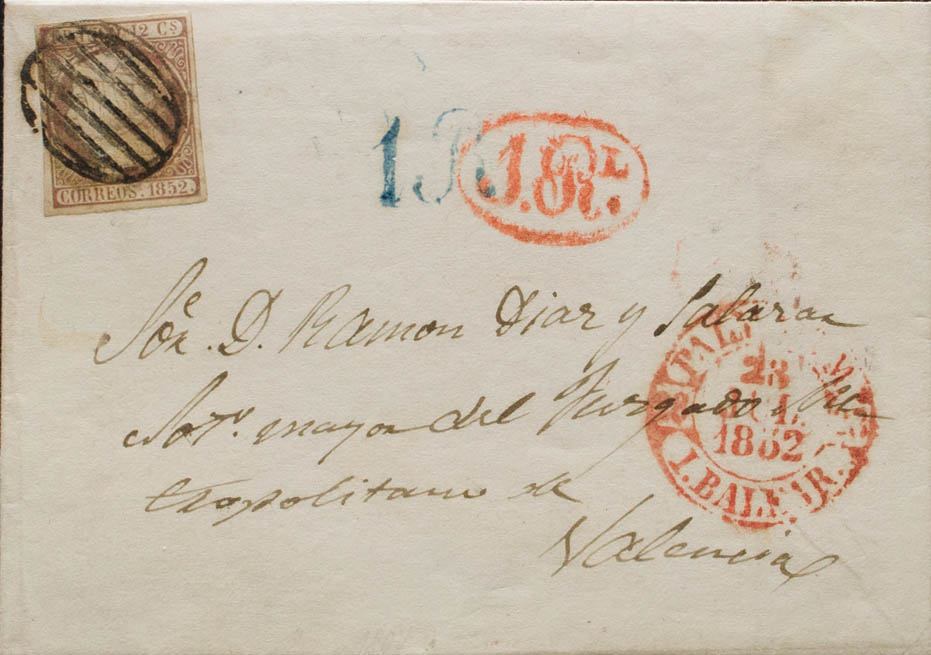 12 Cs
CORREOS. 1852.
1R
1.Rl.
Sōr. D. Ramon Diaz y Salazar
Notº. mayor del Juzgado Me
tropolitano de
Valencia
PAL
23
JUL.
1852
I. BALEAR.